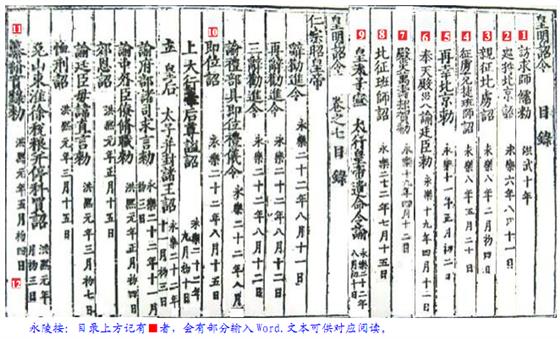 皇明詔令 目錄
1 訪求師儒敕 洪武十年
2 巡狩北京詔 永樂六年八月十一日
3 親征北虜詔 永樂八年二月初四
4 征虜凱旋班師詔 永樂八年
5 再幸北京敕 永樂十一年
6 奉天殿災諭廷臣敕 永樂十九年四月十一
7 殿災 敕 永樂十九年四月十二日
8 北征班師詔 永樂二十二年八月十三
9 皇太子宣 大行皇帝遺命令諭 永樂二十二年八月初十日
皇明詔令 卷之七目錄
仁宗昭皇帝
辭勸進令 永樂二十二年八月十二日
再辭勸進令 永樂二十二年八月十二日
三辭勸進令 永樂二十二年八月
諭禮部具即位禮儀令 永樂二十二年八月
10 即位詔 永樂二十二年八月十五日
上大行 后尊謚詔 永樂二十二年九月初十日
立 皇后 太子并封諸王詔 永樂二十二年十一月初三
諭府部諸司求言敕 永樂二十二年
諭中外臣僚脩職敕 洪熙元年正月十五日
郊恩詔 洪熙元年正月十五日
諭廷臣毋諱直言敕 洪熙元年三月初七日
恤刑詔 洪熙元年三月十五日
免山東淮徐稅糧并停科買詔 洪熙元年四月初三日
11 敕 洪熙元年五月初四日 12
永陵按：目录上方记有■者，会有部分输入Word.文本可供对应阅读。